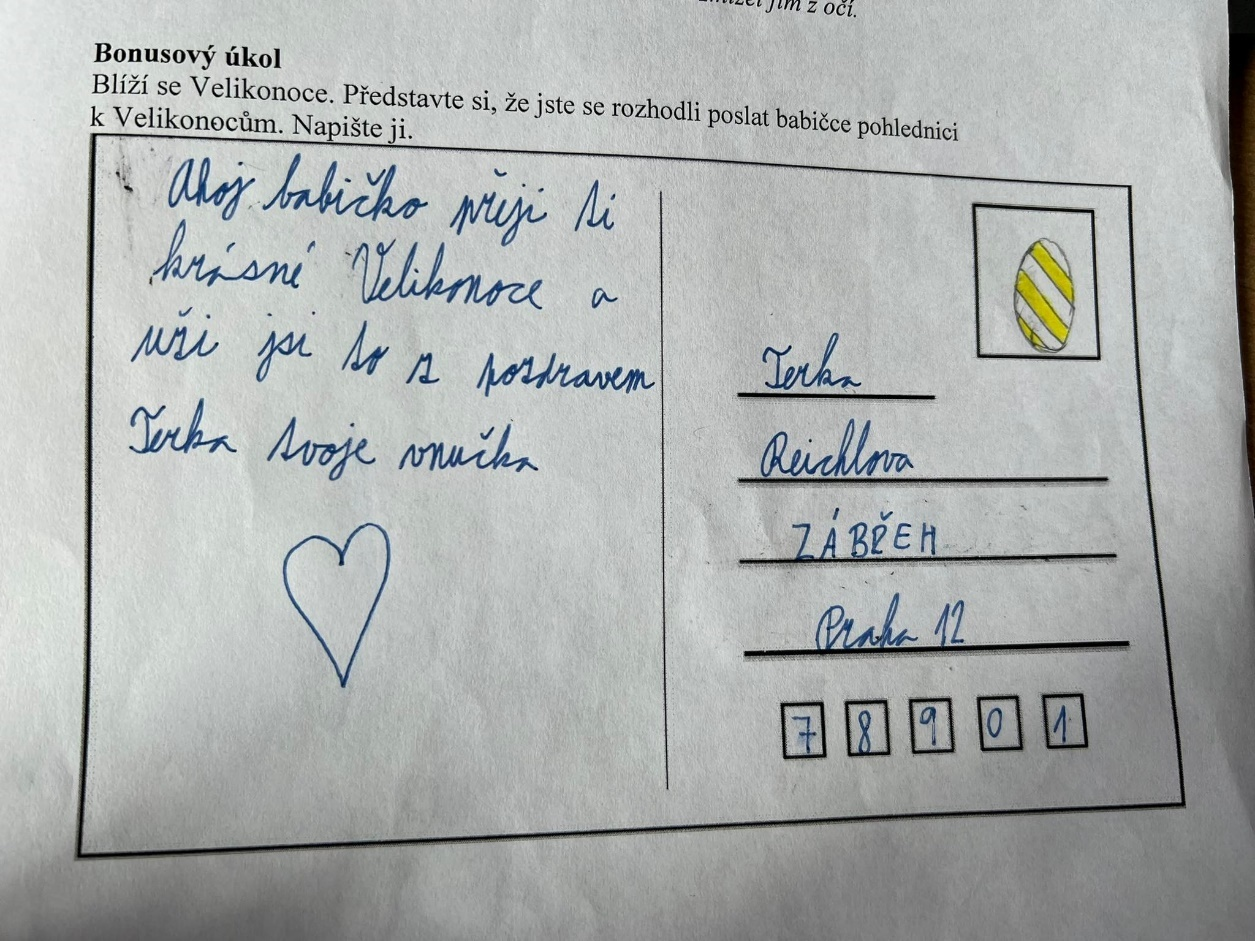 zmizel jim z očí.
Bonusový úkol
Blíží se Velikonoce. Představte si, že jste se rozhodli poslat babičce pohlednici
k Velikonocům. Napište ji.
Ahoj babičko přeji ti
krásné Velikonoce a
uži jsi to s pozdravem
Terka tvoje vnučka
Terka
Reichlova
ZÁBŘEH
Praha 12
7 8 9 0 1